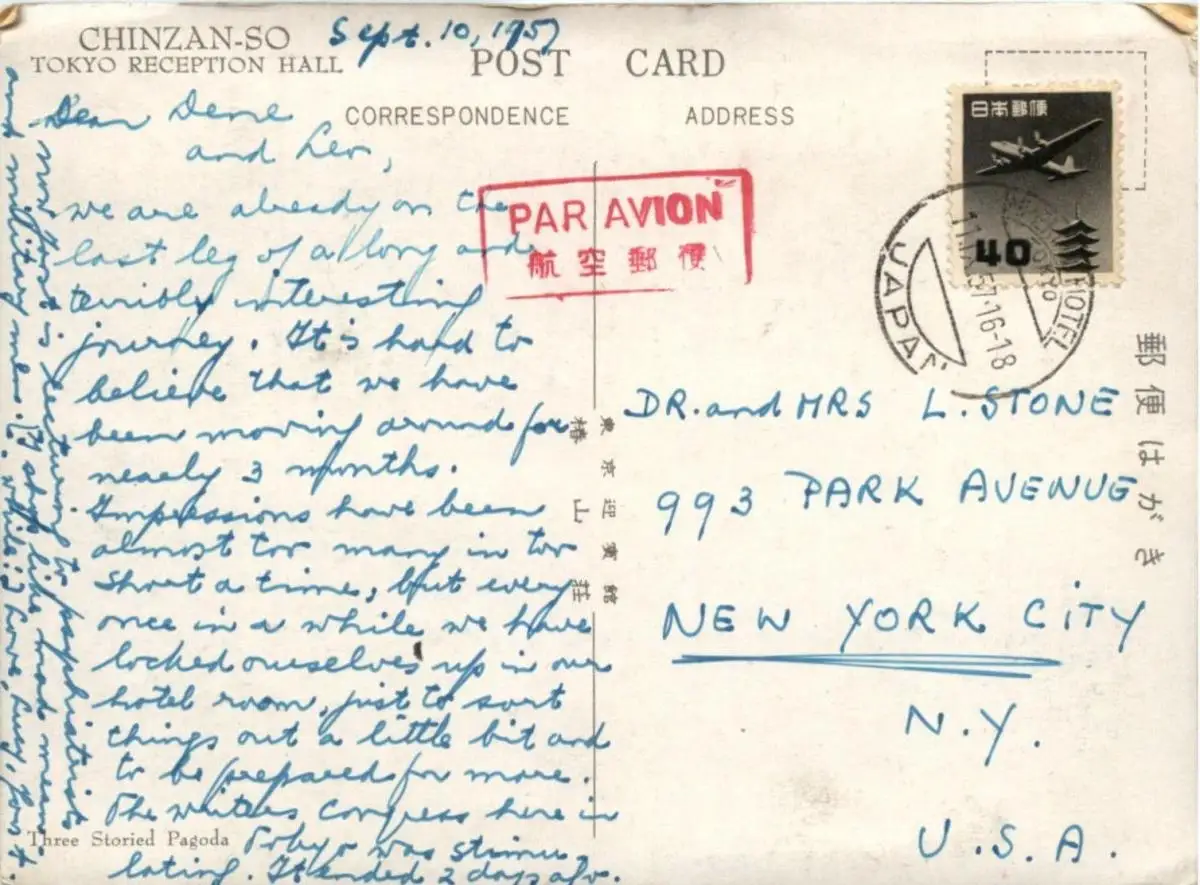 CHINZAN-SO
TOKYO RECEPTION HALL
POST CARD
CORRESPONDENCE
ADDRESS
Sept. 10, 1957
Dear Dene
and Leo,
we are already on the
last leg of a long and
terribly interesting
journey. It is hard to
believe that we have
been moving around for
nearly 3 months.
Impressions have been
almost too many in too
short a time, but every
once in a while we have
locked ourselves up in our
hotel room, just to sort
things out a little bit and
to be prepared for more.
The writers congress here in
Tokyo was stimu
lating. It ended 2 days ago.
now Joost is lecturing to psychiatrists
and military men. (I shop like mad mean
while.) Love, Lucy, Joost.
Three Storied Pagoda
PAR AVION
航空郵便
日本郵便
40
JAPAN
57.16-18
HOTEL
TOKYO
東京迎賓館
椿山荘
郵便はがき
DR. and MRS L. STONE
993 PARK AVENUE
NEW YORK CITY
N.Y.
U.S.A.